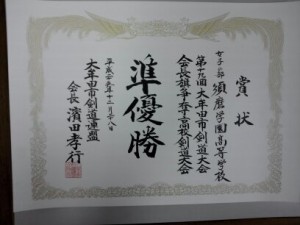 賞状
女子の部 須磨学園高等学校
第十九回大牟田市剣道大会
会長旗争奪高校剣道大会
準優勝
大牟田市剣道連盟
会長 濱田孝行